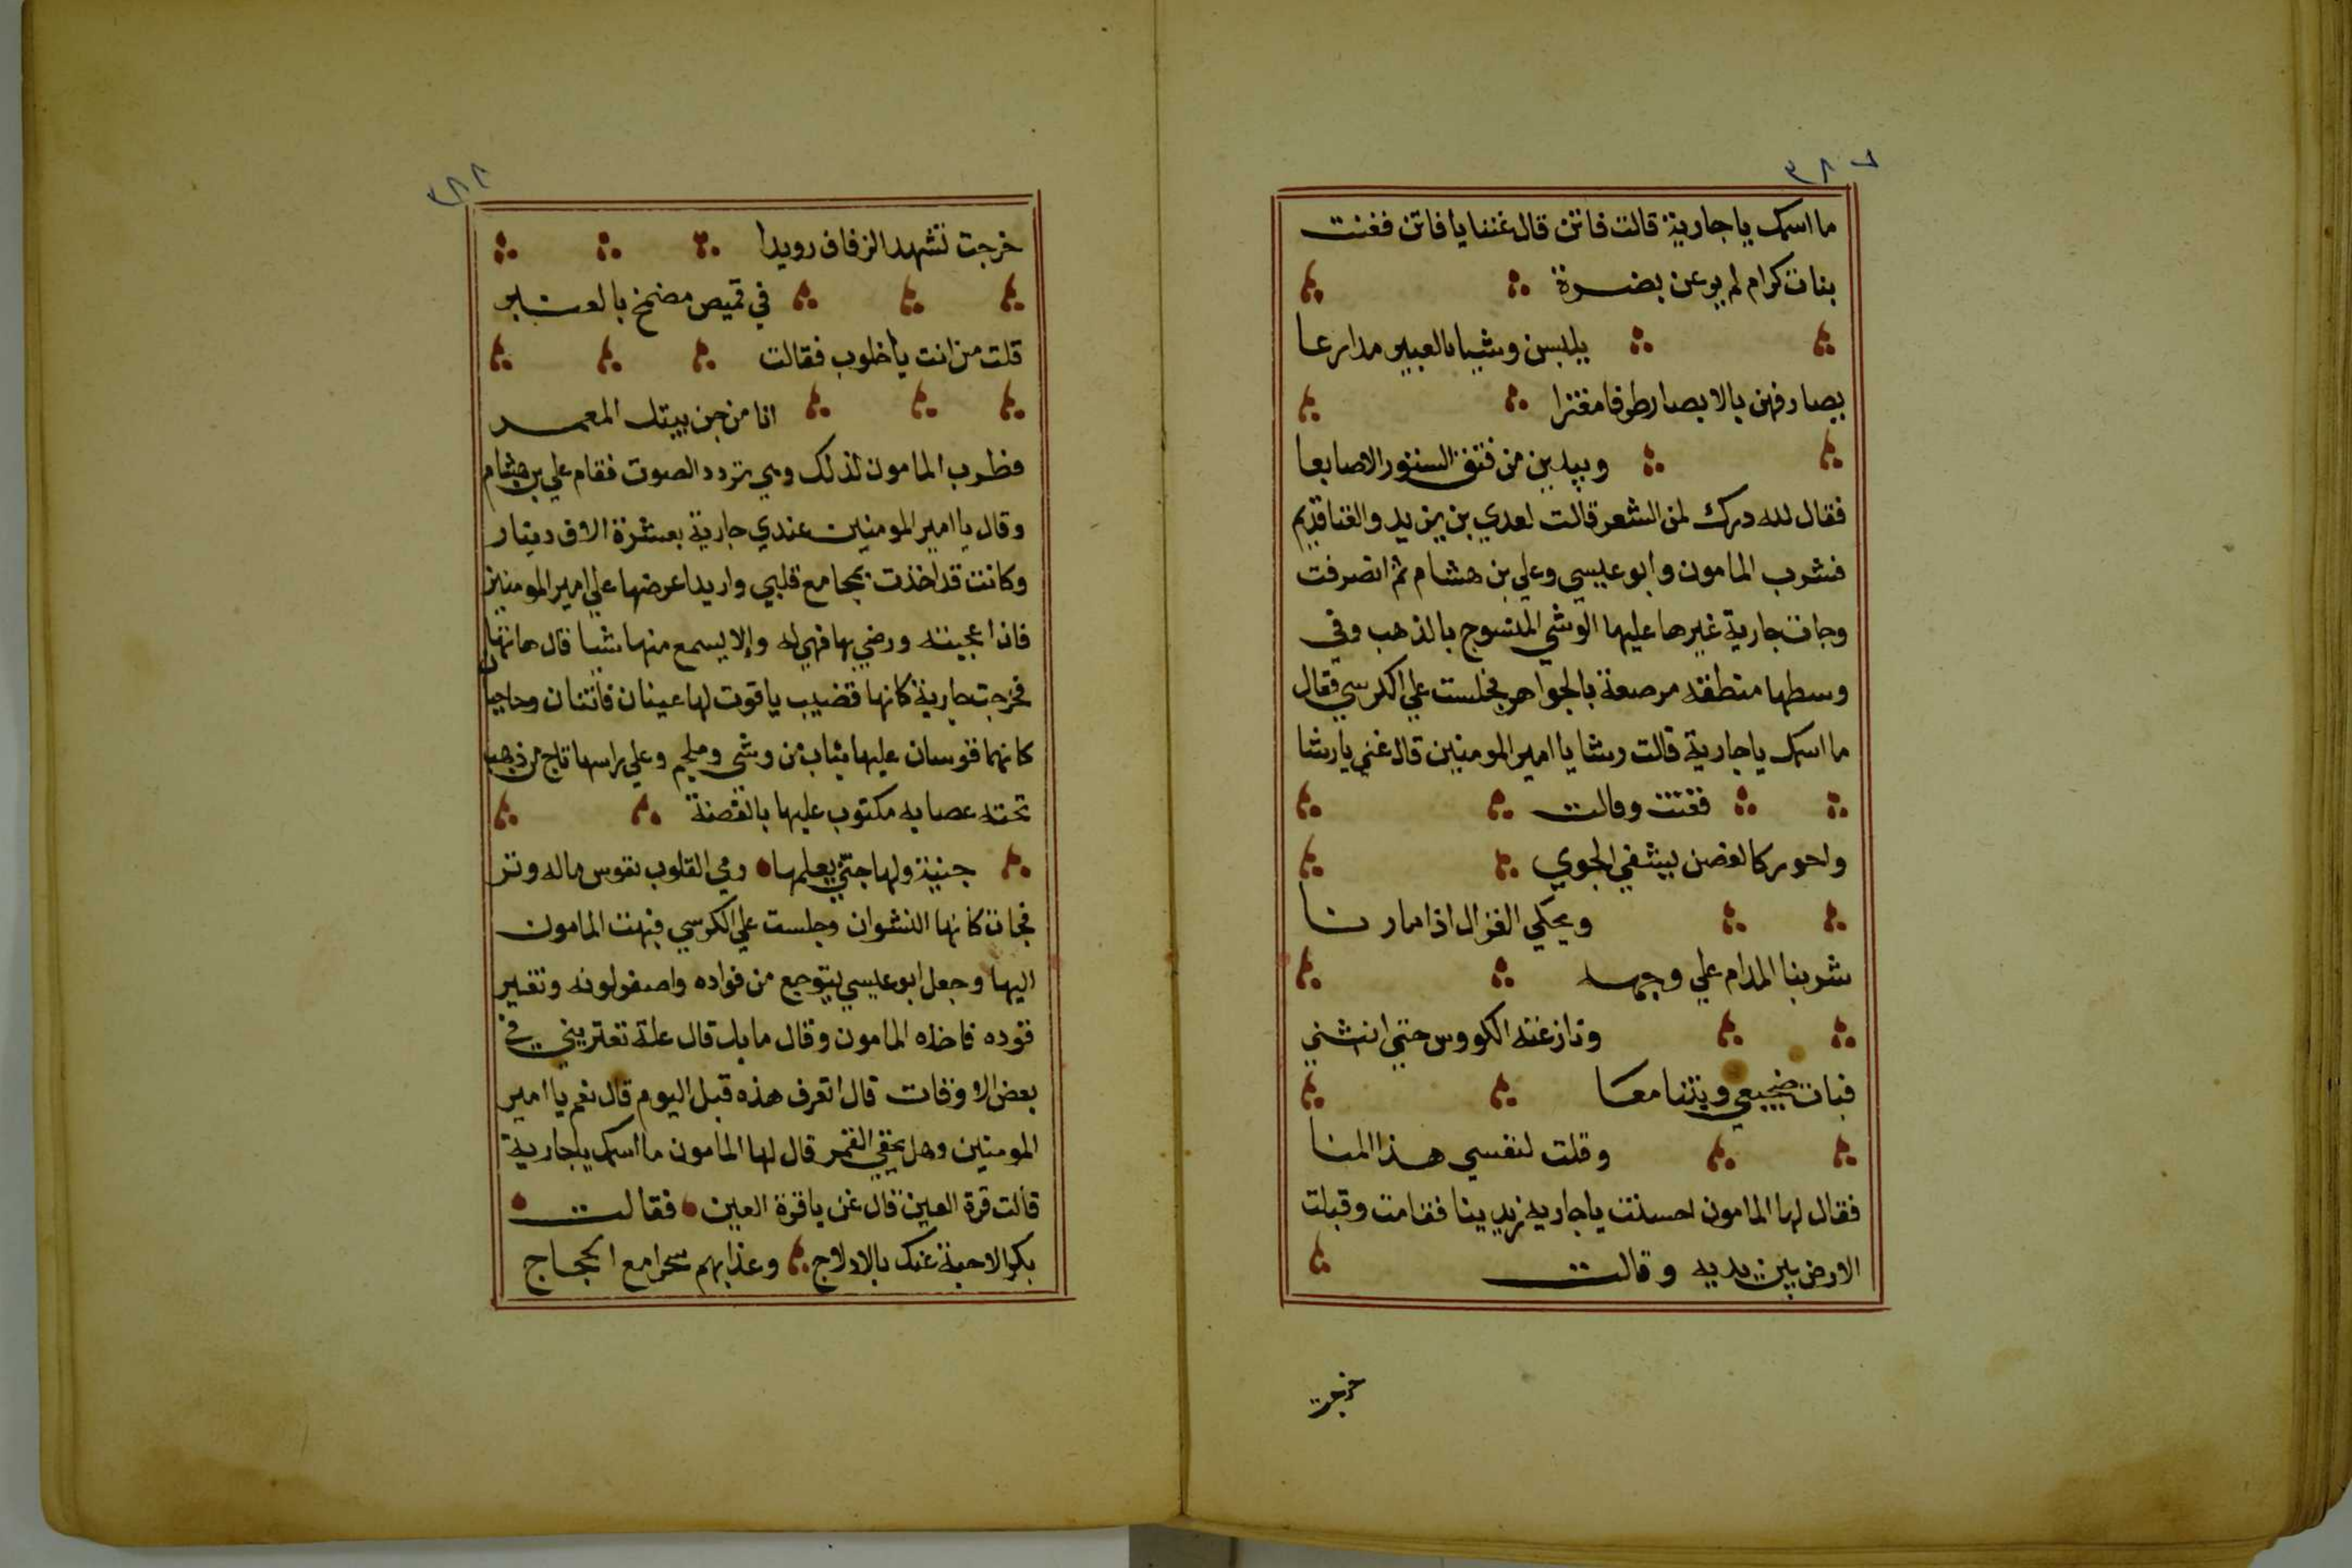 ٣٨٧
ما اسمك يا جارية قالت فاتن قال غننا يا فاتن فغنت
بنات كرام لم يرعن بضرة
يلبسن وشيا بالعبير مدارعا
يصارفهن بالابصار طرفا مفترا
ويبدين من فتق الستور الاصابعا
فقال لله درك لمن الشعر قالت لعدي بن يزيد والغنا قديم
فشرب المامون وابو عيسي وعلي بن هشام ثم انصرفت
وجات جارية غيرها عليها الوشي المنسوج بالذهب وفي
وسطها منطقه مرصعة بالجواهر فجلست علي الكرسي فقال
ما اسمك يا جارية قالت رشا يا امير المومنين قال غني يا رشا
فغنت وقالت
واحور كالغصن ليشفي الجوي
ويحكي الغزال اذا ما رنا
شربنا المدام علي وجهه
ونازعته الكووس حتي انثني
فبات ضجيعي وبتنا معا
وقلت لنفسي هذا المنا
فقال لها المامون احسنت يا جاريه زيدينا فقامت وقبلت
الارض بين يديه وقالت
خرجت
٣٨٨
خرجت تشهد الزفاف رويدا
في قميص مضمخ بالعنبير
قلت من انت يا خلوب فقالت
انا من جن بيتك المعمد
فطرب المامون لذلك وهي تردد الصوت فقام علي بن هشام
وقال يا امير المومنين عندي جارية بعشرة الاف دينار
وكانت قد اخذت بمجامع قلبي واريد اعرضها علي امير المومنين
فان اعجبته ورضي بها فهي له والا يسمع منها شيا قال هاتها
فخرجت جارية كانها قضيب ياقوت لها عينان فاتنان وحاجبان
كانهما قوسان عليها ثياب من وشي وملجم وعلي راسها تاج من ذهب
تحته عصابه مكتوب عليها بالفضة
جنية ولها جني يعلمها رمي القلوب بقوس ماله وتر
فجات كانها النشوان وجلست علي الكرسي فبهت المامون
اليها وجعل ابو عيسي يتوجع من فواده واصفر لونه وتغير
فوده فاخذه المامون وقال ما بك قال علة تعتريني في
بعض الاوقات قال اتعرف هذه قبل اليوم قال نعم يا امير
المومنين وهل يخفي القمر قال لها المامون ما اسمك يا جارية
قالت قرة العين قال غن يا قرة العين فقالت
بكر الاحبة عنك بالادلاج وغدابهم سحرا مع الحجاج